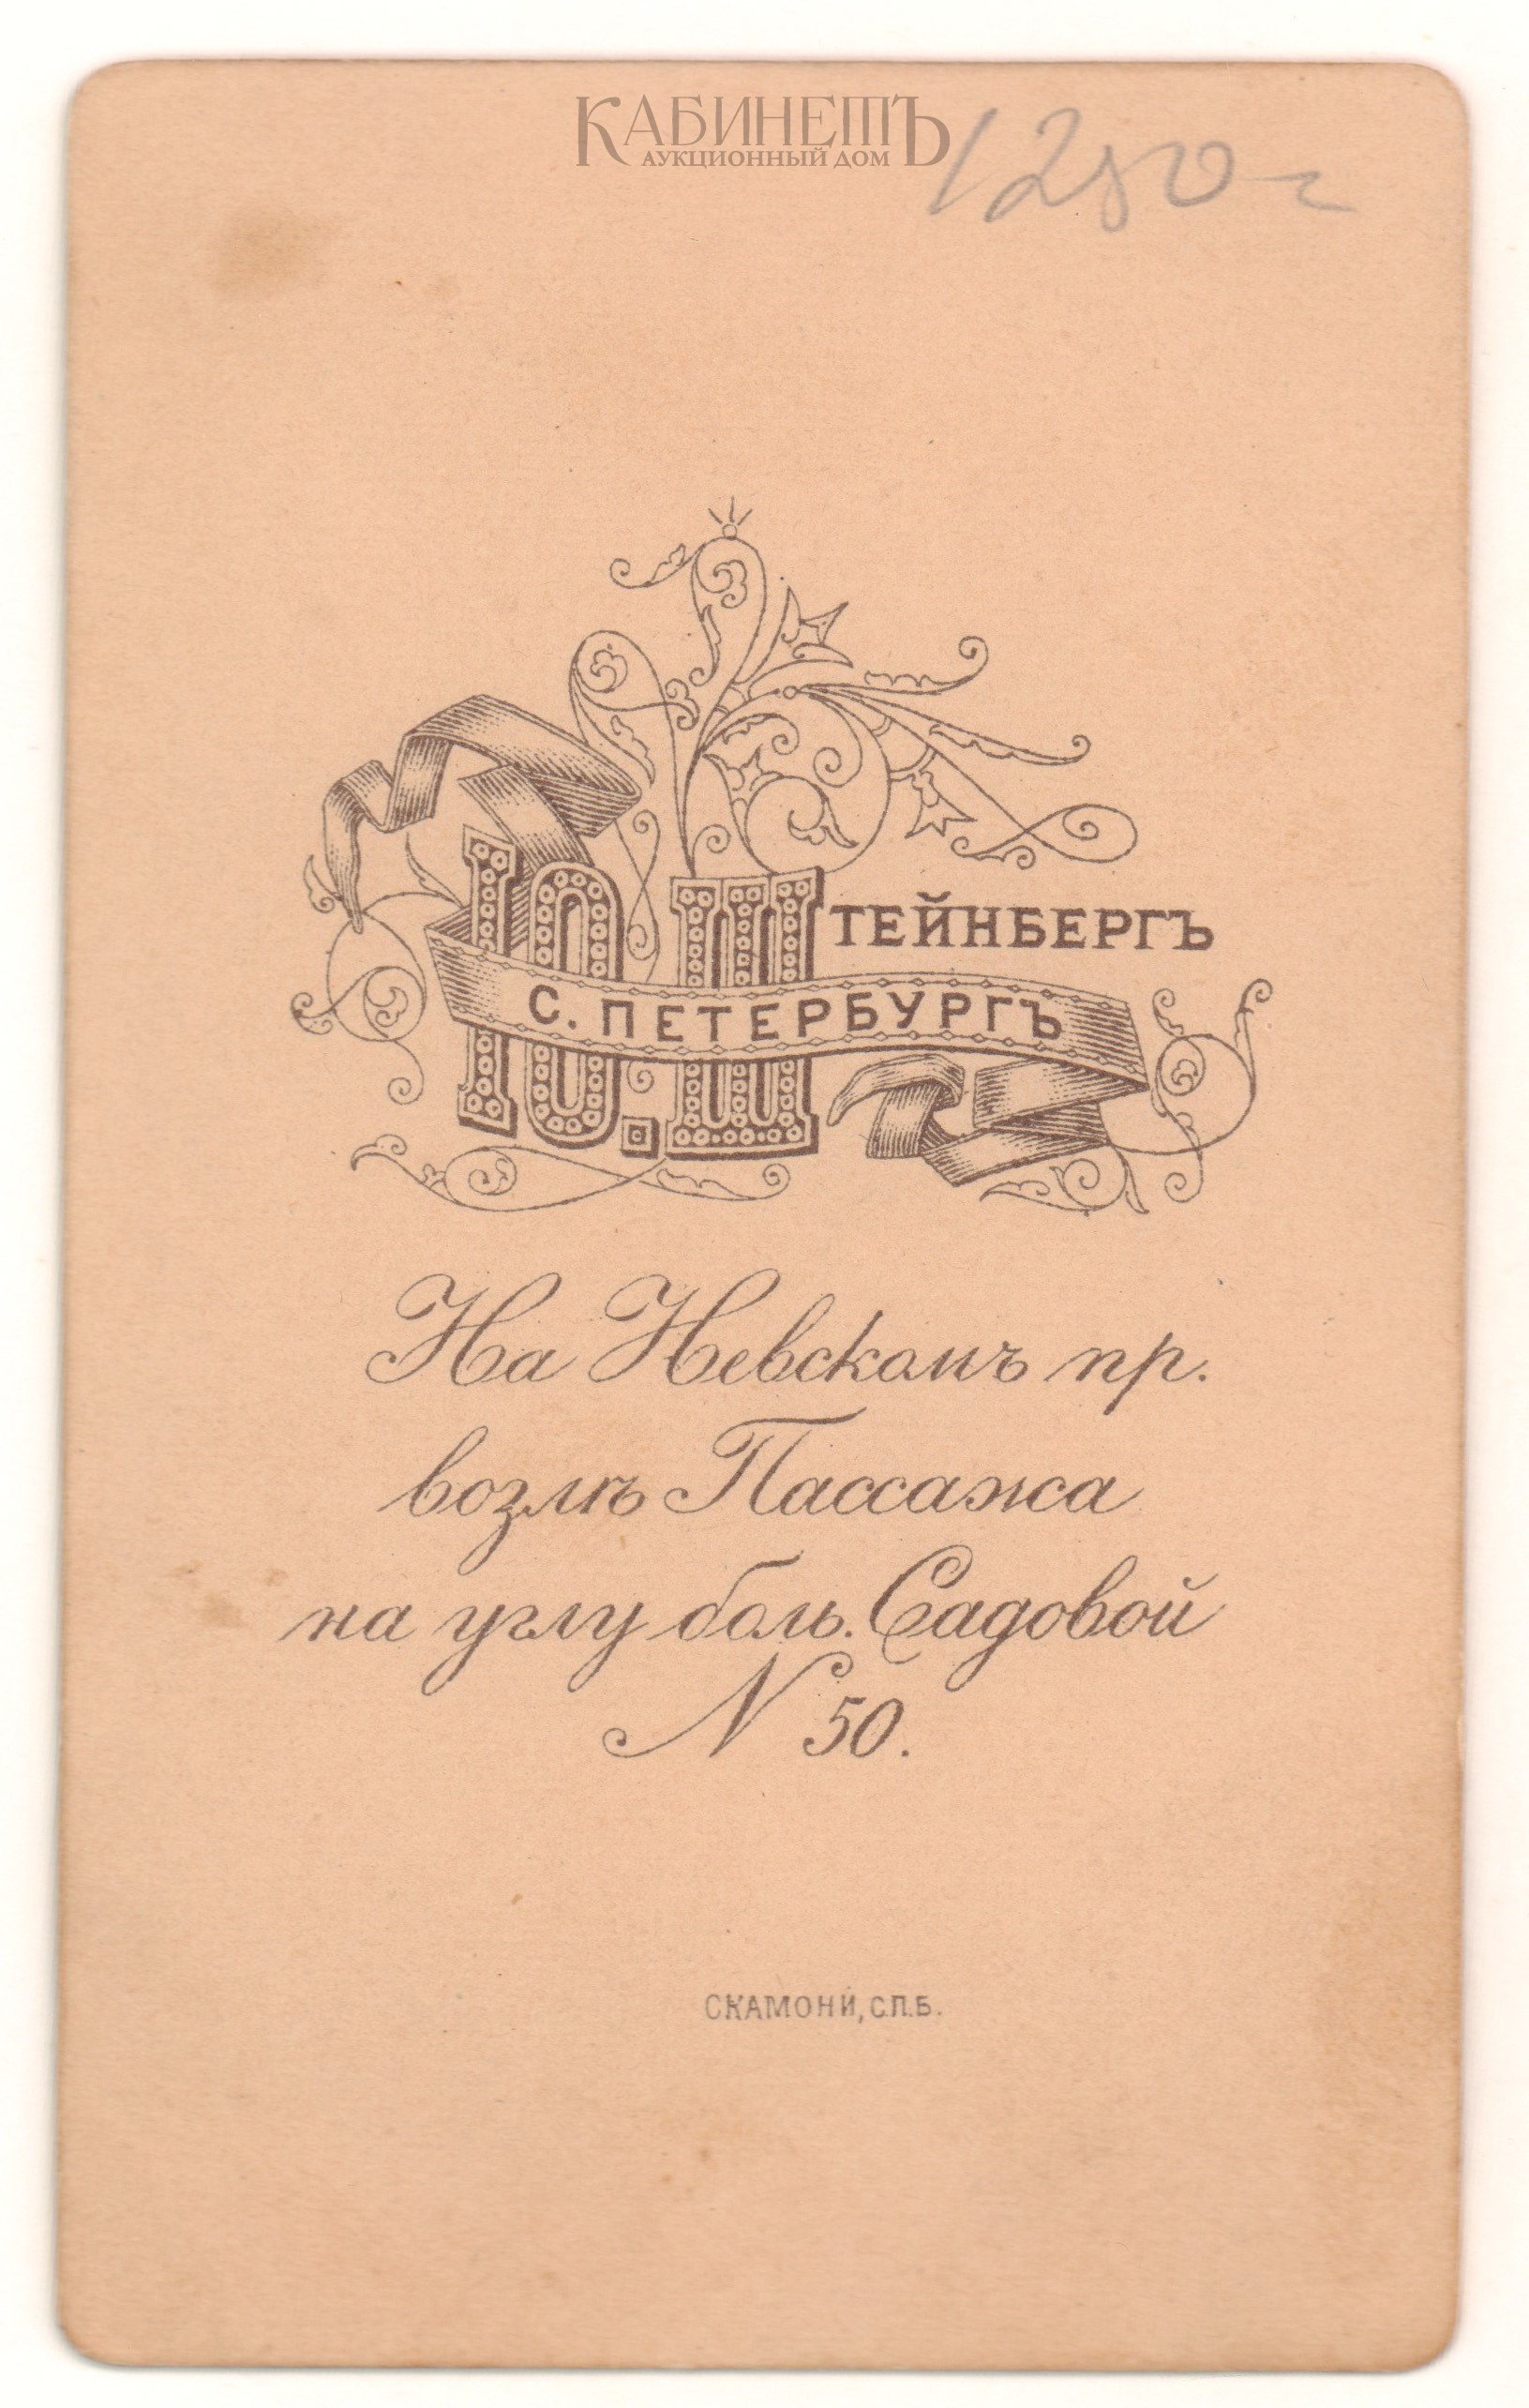 КАБИНЕТЪ
АУКЦИОННЫЙ ДОМ
Ю. ШТЕЙНБЕРГЪ
С. ПЕТЕРБУРГЪ
На Невскомъ пр.
возлѣ Пассажа
на углу боль. Садовой
N 50.
СКАМОНИ, С.П.Б.